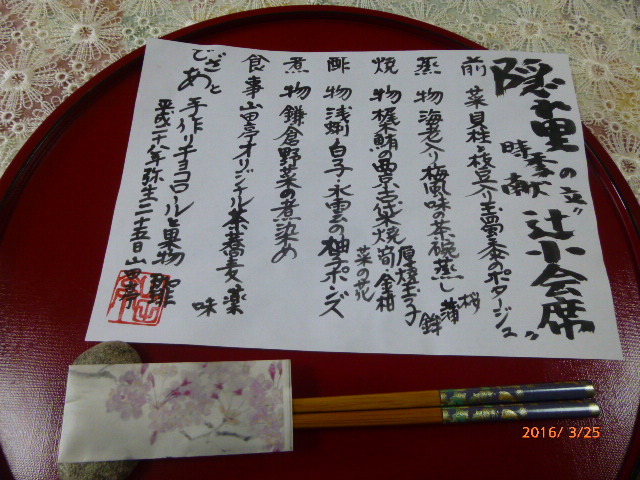 隠れ里の立辻小会席
時季献
前菜 貝柱と枝豆入り玉蜀黍のポタージュ
蒸物 海老入り梅風味の茶碗蒸し 桜
蒲鉾
焼物 楪鮪の黒胡麻焼 厚焼玉子
筍 金柑
菜の花
酢物 浅蜊 白子 水雲の柚子ポンズ
煮物 鎌倉野菜の煮染め
食事 山田亭オリジナル茶蕎麦 薬味
でざあと 手作りチョコロールと果物 珈琲
平成二十八年弥生二十五日 山田亭
2016/ 3/25